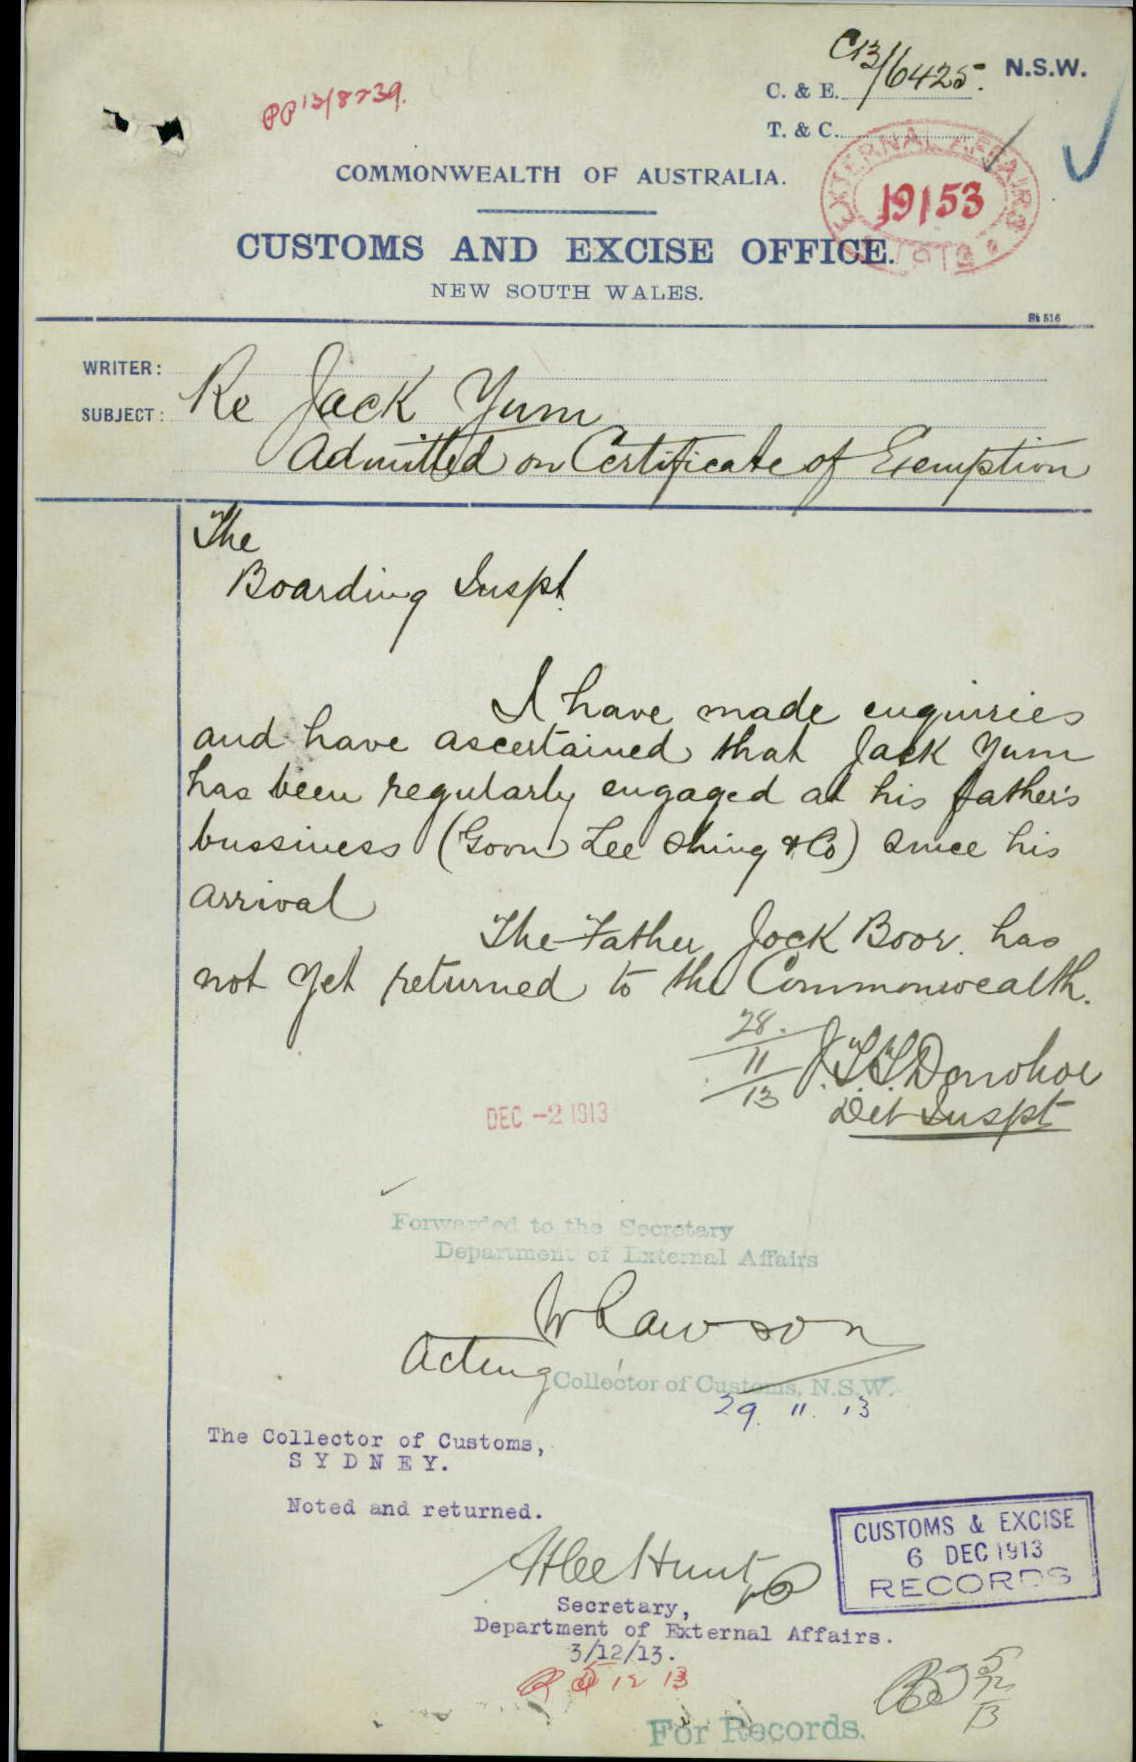 C13/6425. N.S.W.
C. & E.
PP 13/8239.
T. & C.
EXTERNAL AFFAIRS
19153
COMMONWEALTH OF AUSTRALIA.
CUSTOMS AND EXCISE OFFICE.
NEW SOUTH WALES.
WRITER:
SUBJECT: Re Jack Yum
Admitted on Certificate of Exemption
The
Boarding Inspt.
I have made enquiries
and have ascertained that Jack Yum
has been regularly engaged at his father's
bussiness (Goon Lee Shing & Co) since his
arrival
The Father Jock Boor. has
not yet returned to the Commonwealth.
28.
11
13
J.T.T. Donohoe
Det Inspt
DEC -2 1913
Forwarded to the Secretary
Department of External Affairs
W Lawson
Acting Collector of Customs, N.S.W.
29. 11. 13
The Collector of Customs,
SYDNEY.
Noted and returned.
Atlee Hunt
CUSTOMS & EXCISE
6 DEC 1913
RECORDS
Secretary,
Department of External Affairs.
3/12/13.
12 13
5
12
13
For Records.